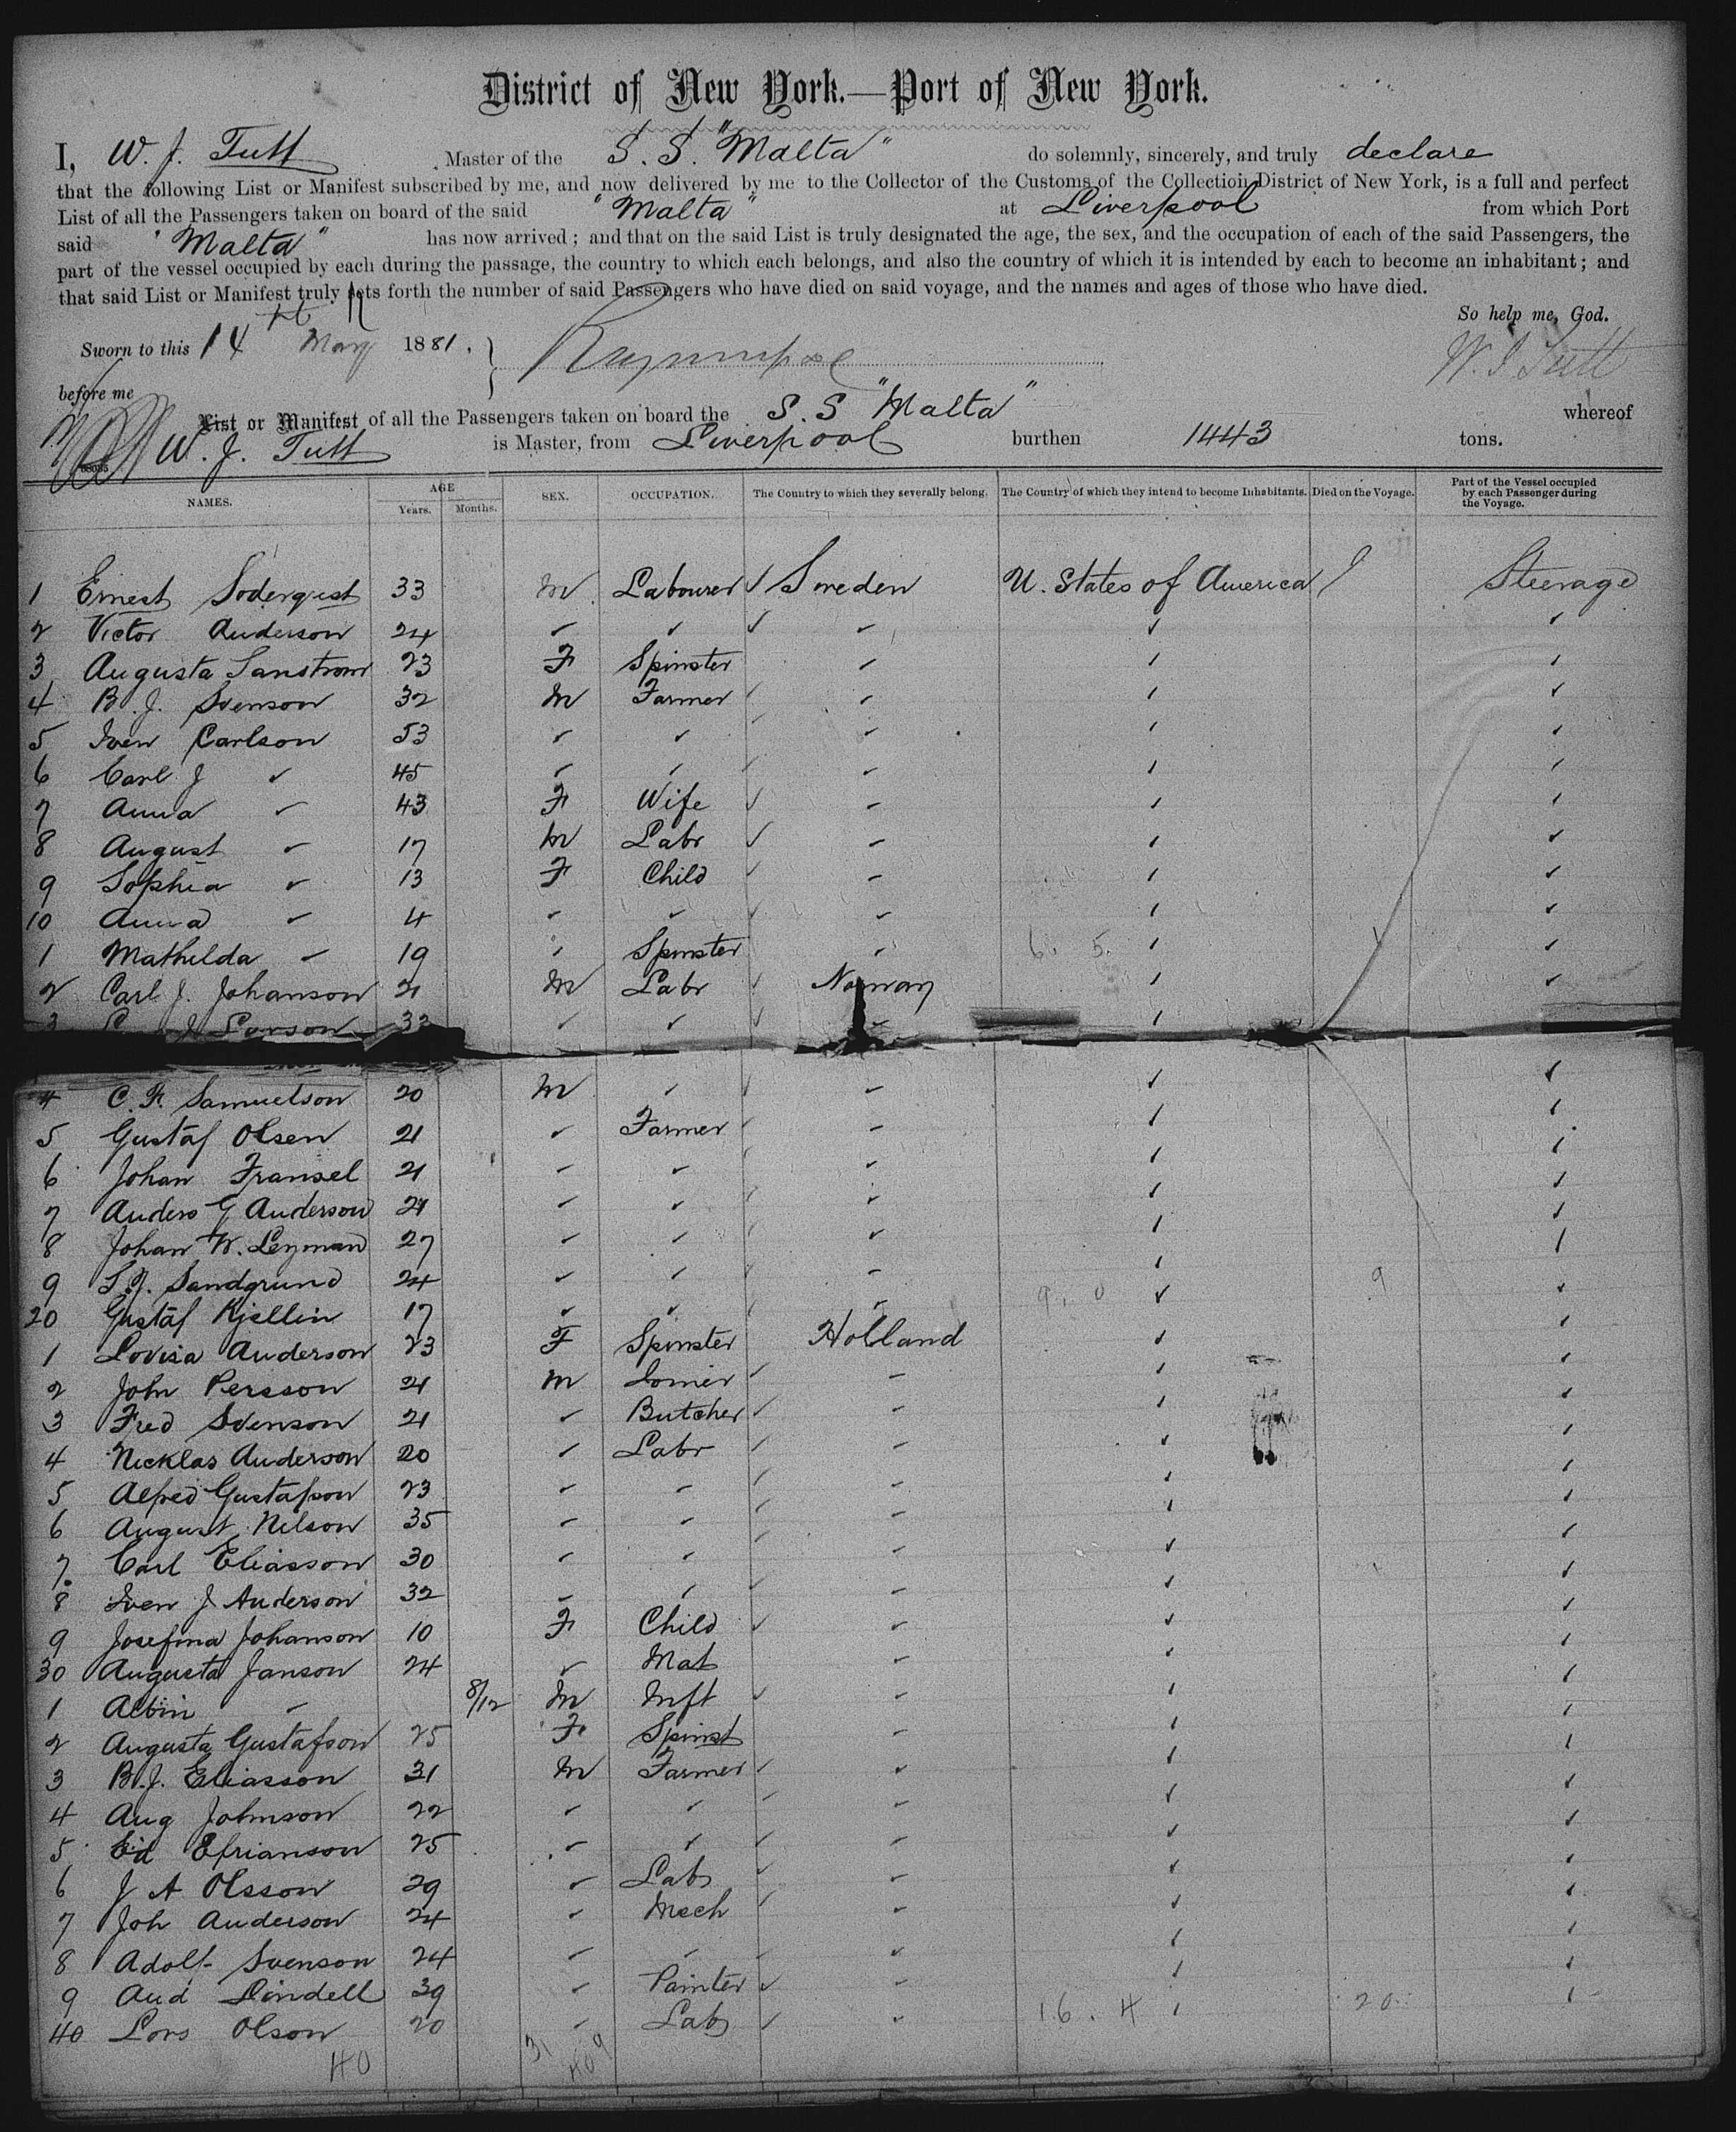 District of New York.—Port of New York.
I, W. J. Tutt Master of the S. S. "Malta" do solemnly, sincerely, and truly declare
that the following List or Manifest subscribed by me, and now delivered by me to the Collector of the Customs of the Collection District of New York, is a full and perfect
List of all the Passengers taken on board of the said "Malta" at Liverpool from which Port
said "Malta" has now arrived; and that on the said List is truly designated the age, the sex, and the occupation of each of the said Passengers, the
part of the vessel occupied by each during the passage, the country to which each belongs, and also the country of which it is intended by each to become an inhabitant; and
that said List or Manifest truly sets forth the number of said Passengers who have died on said voyage, and the names and ages of those who have died.
So help me, God.
Sworn to this 14th May 1881. W. J. Tutt
before me
List or Manifest of all the Passengers taken on board the S. S "Malta" whereof
W. J. Tutt is Master, from Liverpool burthen 1443 tons.
NAMES. AGE Years. Months. SEX. OCCUPATION. The Country to which they severally belong. The Country of which they intend to become Inhabitants. Died on the Voyage. Part of the Vessel occupied by each Passenger during the Voyage.
1 Ernest Soderquist 33 M Labourer ✓ Sweden U. States of America Steerage
2 Victor Anderson 24 ✓ ✓ ✓ ✓ ✓ ✓
3 Augusta Sanstrom 23 F Spinster ✓ ✓ ✓
4 B. J. Svenson 32 M Farmer ✓ ✓ ✓ ✓
5 Sven Carlson 53 ✓ ✓ ✓ ✓ ✓ ✓
6 Carl J ✓ 45 ✓ ✓ ✓ ✓ ✓ ✓
7 Anna ✓ 43 F Wife ✓ ✓ ✓ ✓
8 August ✓ 17 M Labr ✓ ✓ ✓ ✓
9 Sophia ✓ 13 F Child ✓ ✓ ✓ ✓
10 Anna ✓ 4 ✓ ✓ ✓ ✓ ✓ ✓
1 Mathilda ✓ 19 ✓ Spinster ✓ 6. 5. ✓ ✓
2 Carl J. Johanson 21 M Labr ✓ Norway ✓ ✓
3 Larson 33 ✓ ✓ ✓ ✓ ✓
4 C. F. Samuelson 20 M ✓ ✓ ✓ ✓ ✓
5 Gustaf Olsen 21 ✓ Farmer ✓ ✓ ✓ ✓
6 Johan Fransel 21 ✓ ✓ ✓ ✓ ✓ ✓
7 Anders G Anderson 21 ✓ ✓ ✓ ✓ ✓ ✓
8 Johan W. Leyman 27 ✓ ✓ ✓ ✓ ✓ ✓
9 Sandgrund 24 ✓ ✓ ✓ ✓ ✓ ✓
20 Gustaf Kjellin 17 ✓ ✓ ✓ ✓ 9. 0 ✓ 9 ✓
1 Lovisa Anderson 23 F Spinster Holland ✓ ✓
2 John Persson 21 M Joiner ✓ ✓ ✓ ✓
3 Fred Svenson 21 ✓ Butcher ✓ ✓ ✓ ✓
4 Nicklas Anderson 20 ✓ Labr ✓ ✓ ✓ ✓
5 Alfred Gustafson 23 ✓ ✓ ✓ ✓ ✓ ✓
6 August Nilson 35 ✓ ✓ ✓ ✓ ✓ ✓
7 Carl Eliasson 30 ✓ ✓ ✓ ✓ ✓ ✓
8 Sven J Anderson 32 ✓ ✓ ✓ ✓ ✓ ✓
9 Josefina Johanson 10 F Child ✓ ✓ ✓ ✓
30 Augusta Janson 24 ✓ Mat ✓ ✓ ✓
1 Albin ✓ 8/12 M Inft ✓ ✓ ✓ ✓
2 Augusta Gustafson 25 F Spinst ✓ ✓ ✓
3 B. J. Eliasson 31 M Farmer ✓ ✓ ✓ ✓
4 Aug Johnson 22 ✓ ✓ ✓ ✓ ✓ ✓
5 Ed Efrianson 25 ✓ ✓ ✓ ✓ ✓ ✓
6 J A Olsson 29 ✓ Labr ✓ ✓ ✓ ✓
7 Joh Anderson 24 ✓ Mech ✓ ✓ ✓ ✓
8 Adolf Svenson 24 ✓ ✓ ✓ ✓ ✓ ✓
9 And Lindell 39 ✓ Painter ✓ ✓ ✓ ✓
40 Lars Olson 20 ✓ Labr ✓ ✓ 16. 4 ✓ 20 ✓
40 31 9